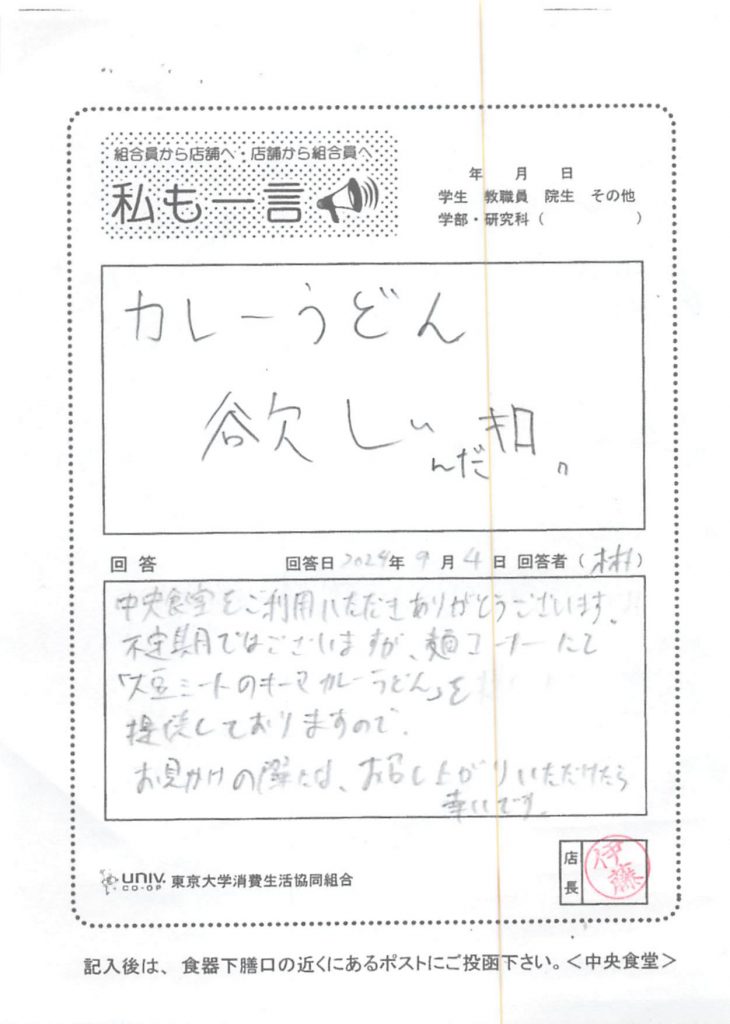 組合員から店舗へ・店舗から組合員へ
私も一言
年 月 日
学生 教職員 院生 その他
学部・研究科( )
カレーうどん
欲しい
んだ
回答 回答日 2024年 9月 4日 回答者(林)
中央食堂をご利用いただきありがとうございます。
不定期ではございますが、麺コーナーにて
「大豆ミートのキーマカレーうどん」を
提供しておりますので、
お見かけの際には、お召し上がりいただけたら
幸いです。
UNIV. CO-OP 東京大学消費生活協同組合
店長 伊藤
記入後は、食器下膳口の近くにあるポストにご投函下さい。<中央食堂>